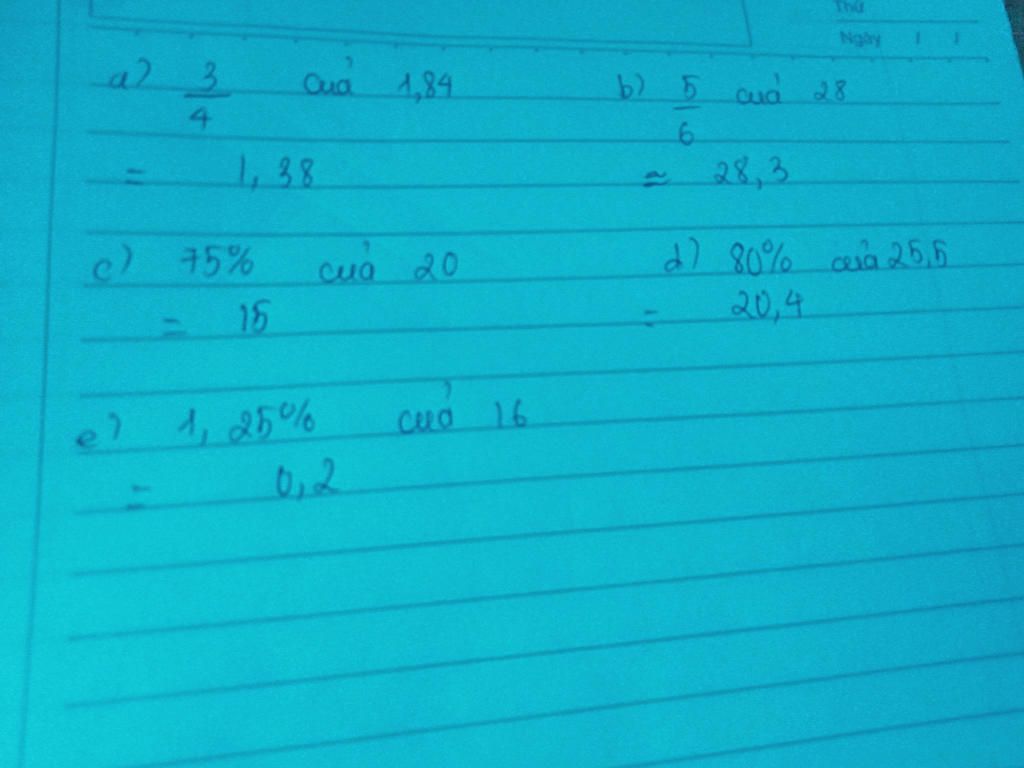 Thứ
Ngày / /
a) 3/4 của 1,84
b) 5/6 của 28
= 1,38
≈ 28,3
c) 75% của 20
d) 80% của 25,5
= 15
= 20,4
e) 1,25% của 16
= 0,2